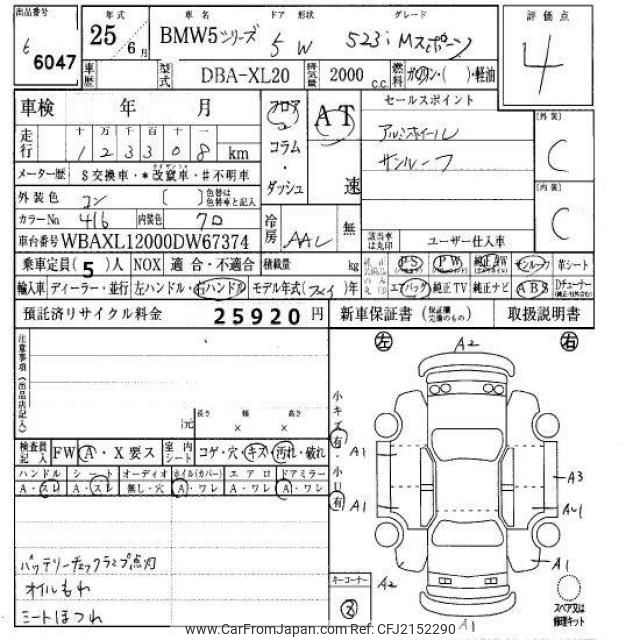 出品番号 年式 車名 ドア 形状 グレード 評価点
6047 25年 6月 BMW5シリーズ 5 W 523i Mスポーツ 4
車歴 型式 DBA-XL20 排気量 2000 c.c. 燃料 ガソリン・( )・軽油
車検 年 月 フロア AT セールスポイント
走行 十 万 千 百 十 一 コラム アルミホイール [外装] C
1 2 3 3 0 8 km ・ サンルーフ
メーター歴 $交換車・*改竄車・#不明車 ダッシュ 速
外装色 コン [ ] 色替は色替車と記入 [内装] C
カラーNo 416 内装色 クロ 冷房 AAC 無
車台番号 WBAXL12000DW67374 該当車は丸印 ユーザー仕入車
乗車定員(5)人 NOX 適合・不適合 積載量 kg PS PW 純正AW サンルーフ 革シート
輸入車 ディーラー・並行 左ハンドル・右ハンドル モデル年式( )年 エアバッグ 純正TV 純正ナビ ABS Dチューナー
預託済リサイクル料金 25920円 新車保証書 (保証継完備のもの) 取扱説明書
注意事項(出品店記入)
左 A2 右
万元 長さ 幅 高さ
× ×
小キズ有・小U有
検査員記入 FW A・X要ス 室内シート コゲ・穴・キズ・汚れ・破れ
ハンドル シート オーディオ ホイル(カバー) エアロ ドアミラー
A・スレ A・スレ 無し・穴 A・ワレ A・ワレ A・ワレ
A1 A3
A1 AU1
バッテリーチェックランプ点灯
オイルもれ
シートほつれ
A2 A1
キーコーナー
2
A1
スペア又は修理キット
www.CarFromJapan.com Ref: CFJ2152290